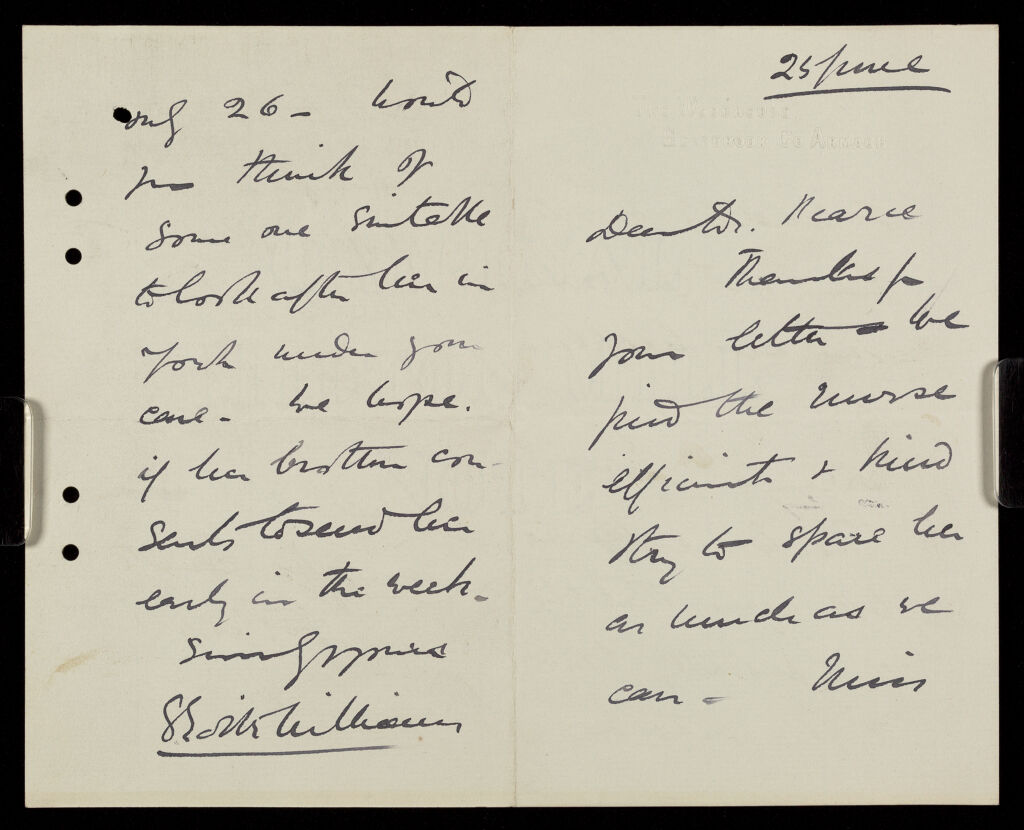 25 June
Dear Dr. Pearce
Thanks for
your letter - We
find the nurse
efficient & kind
& try to spare her
as much as we
can - Miss
only 26 - Could
you think of
some one suitable
to look after her in
York under your
care - We hope.
if her brother con-
sents to send her
early in the week -
Sincerely yours
Williams